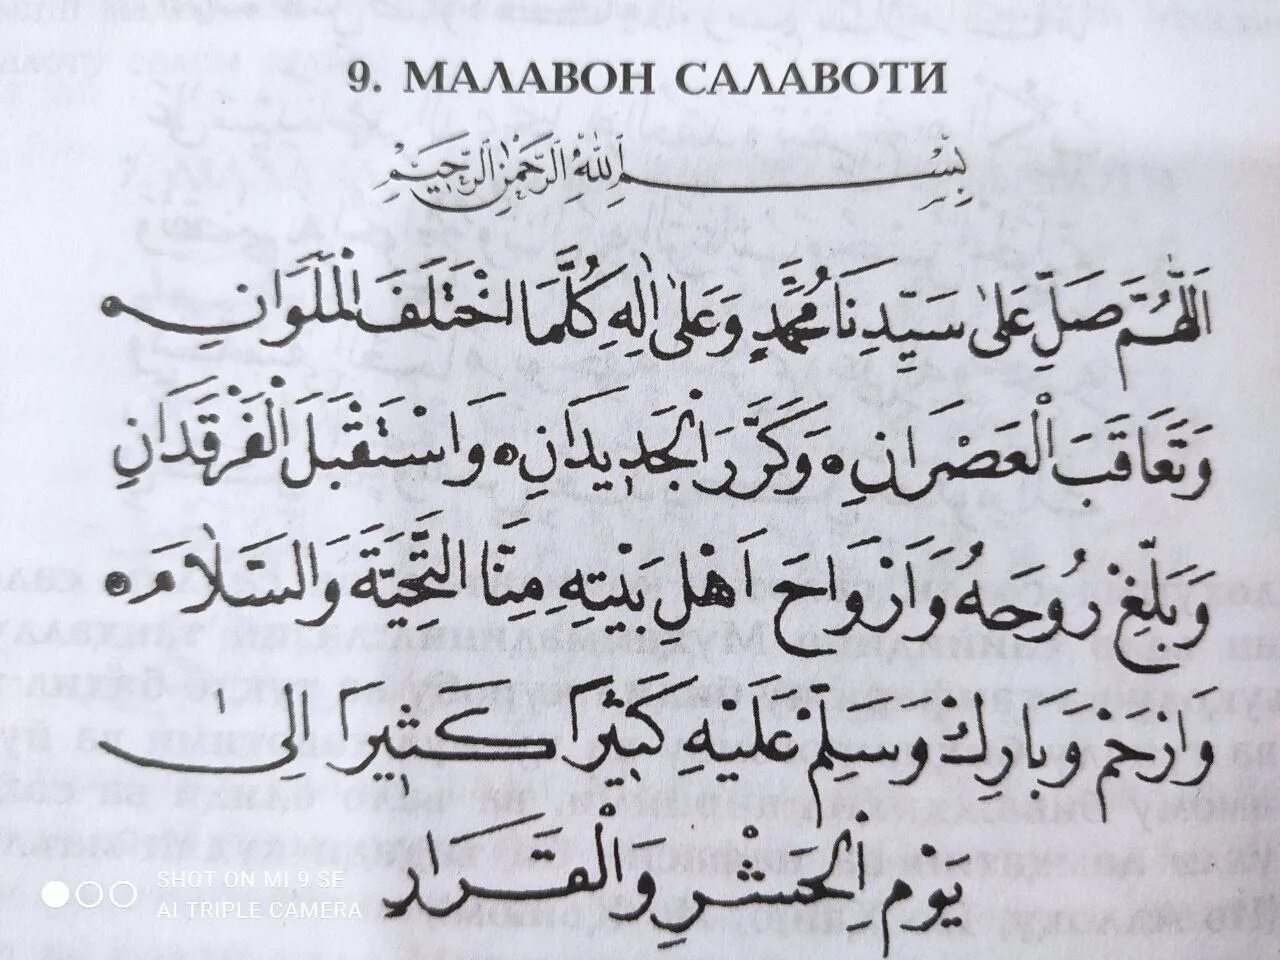 9. МАЛАВОН САЛАВОТИ
بِسْــــــمِ اللهِ الرَّحْمٰنِ الرَّحِيمِ
اَللّٰهُمَّ صَلِّ عَلٰى سَيِّدِنَا مُحَمَّدٍ وَعَلٰى اٰلِهِ كُلَّمَا اخْتَلَفَ الْمَلَوَانِ ه
وَتَعَاقَبَ الْعَصْرَانِ ه وَكَرَّرَ الْجَدِيدَانِ ه وَاسْتَقْبَلَ الْفَرْقَدَانِ
وَبَلِّغْ رُوحَهُ وَاَرْوَاحَ اَهْلِ بَيْتِهِ مِنَّا التَّحِيَّةَ وَالسَّلَامَ ه
وَارْحَمْ وَبَارِكْ وَسَلِّمْ عَلَيْهِ كَثِيْرًا كَثِيرًا اِلٰى
يَوْمِ الْحَشْرِ وَالْقَرَارِ
SHOT ON MI 9 SE
AI TRIPLE CAMERA